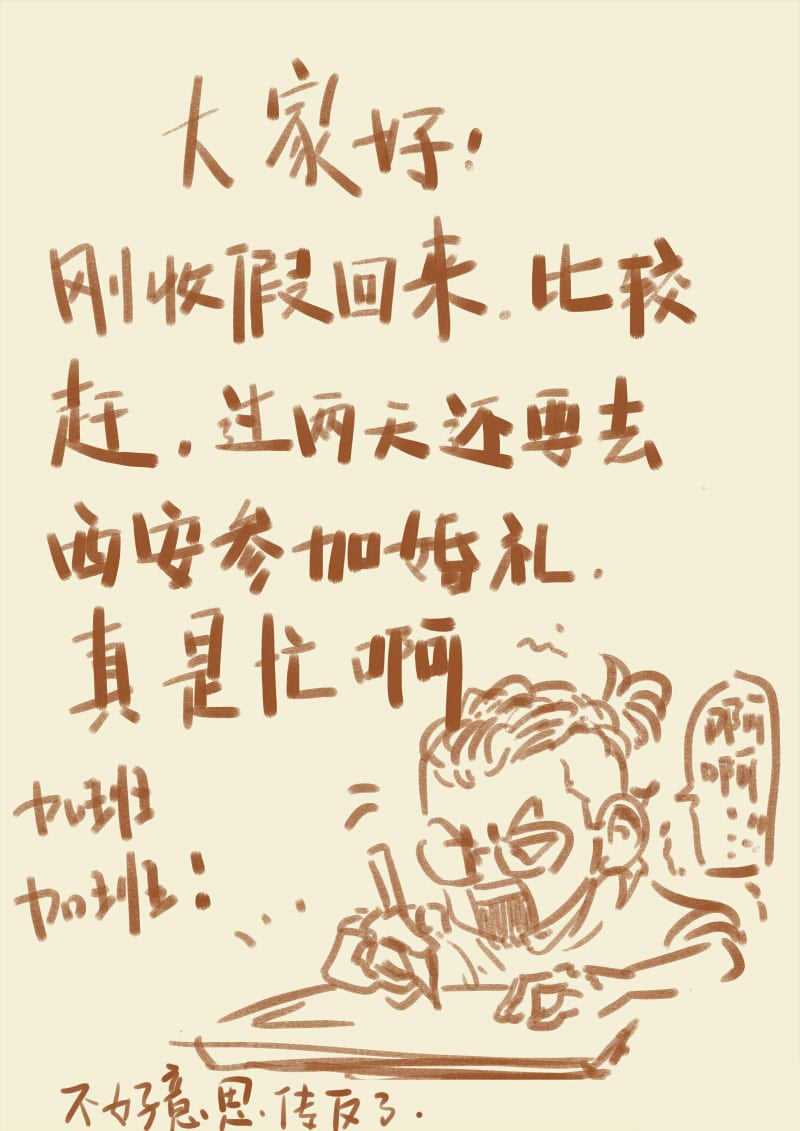 大家好！
刚收假回来.比较
赶.过两天还要去
西安参加婚礼.
真是忙啊
啊啊
加班
加班！
不好意思.传反了.